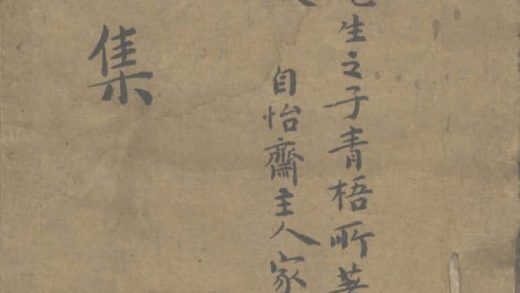 先生之子青梧所著
自怡齋主人家
集